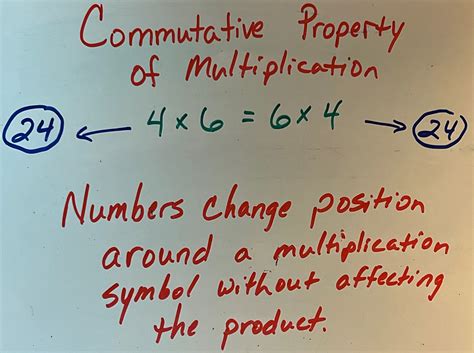 Commutative Property
of Multiplication
24 ← 4 × 6 = 6 × 4 → 24
Numbers change position
around a multiplication
symbol without affecting
the product.